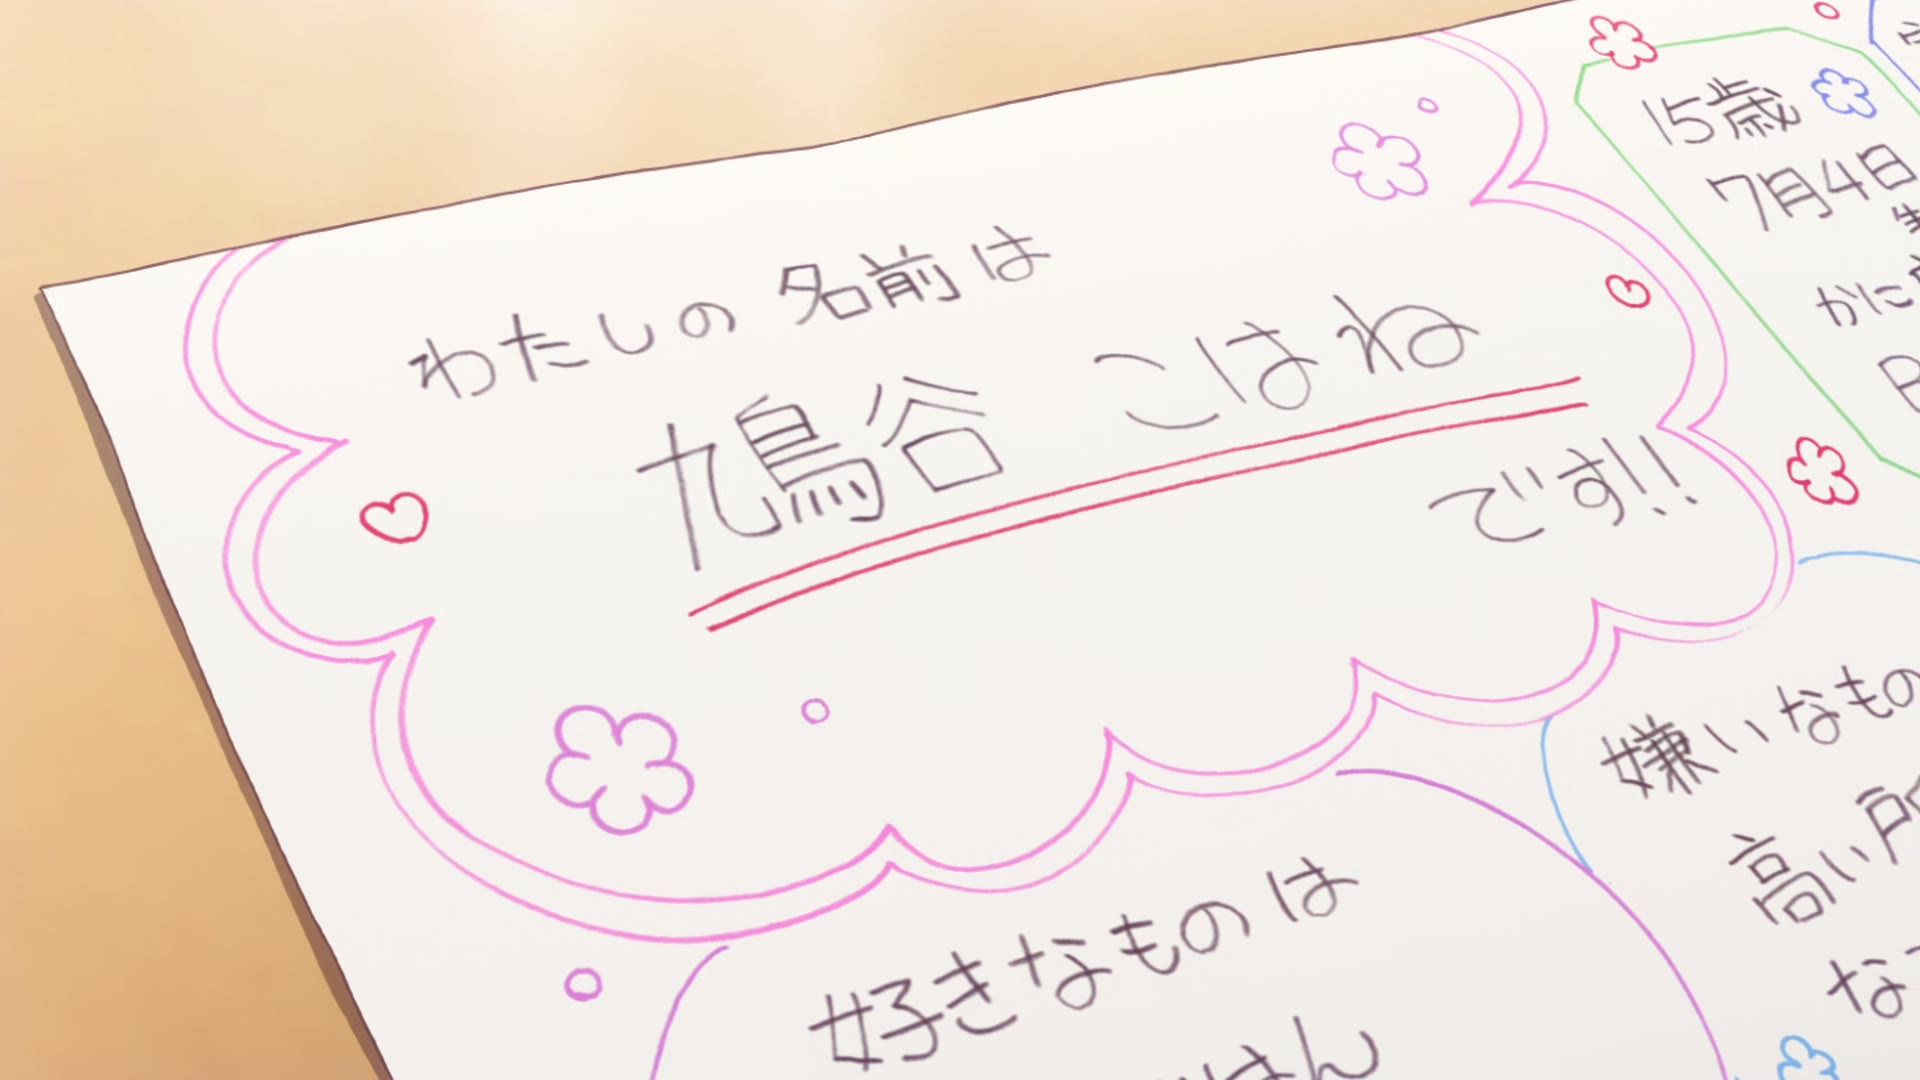 わたしの名前は
鳩谷 こはね
です!!
15歳
7月4日
かに
好きなものは
はん
嫌いなもの
高い所
な